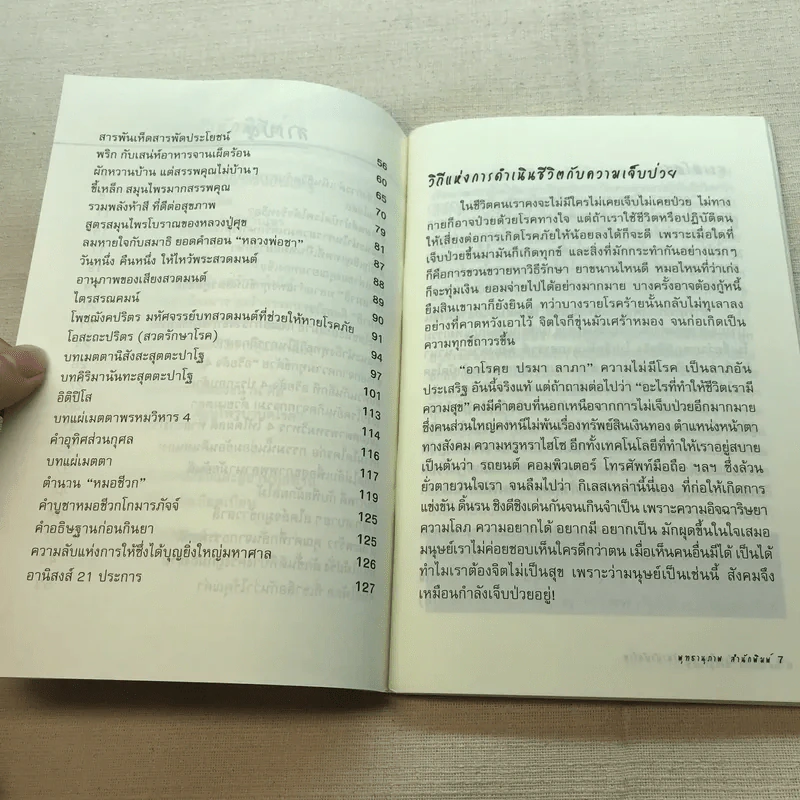 สารพันเห็ดสารพัดประโยชน์ 56
พริก กับเสน่ห์อาหารจานเผ็ดร้อน 60
ผักหวานบ้าน แต่สรรพคุณไม่บ้านๆ 65
ขี้เหล็ก สมุนไพรมากสรรพคุณ 70
รวมพลังห้าสี ที่ดีต่อสุขภาพ 79
สูตรสมุนไพรโบราณของหลวงปู่ศุข 81
ลมหายใจกับสมาธิ ยอดคำสอน “หลวงพ่อชา” 87
วันหนึ่ง คืนหนึ่ง ให้ไหว้พระสวดมนต์ 88
อานุภาพของเสียงสวดมนต์ 89
ไตรสรณคมน์ 90
โพชฌังคปริตร มหัศจรรย์บทสวดมนต์ที่ช่วยให้หายโรคภัย 91
โอสะถะปริตร (สวดรักษาโรค) 94
บทเมตตานิสังสะสุตตะปาโฐ 97
บทคิริมานันทะสุตตะปาโฐ 101
อิติปิโส 113
บทแผ่เมตตาพรหมวิหาร 4 114
คำอุทิศส่วนกุศล 116
บทแผ่เมตตา 117
ตำนาน “หมอชีวก” 119
คำบูชาหมอชีวกโกมารภัจจ์ 125
คำอธิษฐานก่อนกินยา 125
ความลับแห่งการให้ซึ่งได้บุญยิ่งใหญ่มหาศาล 126
อานิสงส์ 21 ประการ 127
วิถีแห่งการดำเนินชีวิตกับความเจ็บป่วย
ในชีวิตคนเราคงจะไม่มีใครไม่เคยเจ็บไม่เคยป่วย ไม่ทาง
กายก็อาจป่วยด้วยโรคทางใจ แต่ถ้าเราใช้ชีวิตหรือปฏิบัติตน
ให้เสี่ยงต่อการเกิดโรคภัยให้น้อยลงได้ก็จะดี เพราะเมื่อใดที่
เจ็บป่วยขึ้นมามันก็เกิดทุกข์ และสิ่งที่มักกระทำกันอย่างแรกๆ
ก็คือการขวนขวายหาวิธีรักษา ยาขนานไหนดี หมอไหนที่ว่าเก่ง
ก็จะทุ่มเงิน ยอมจ่ายไปได้อย่างมากมาย บางครั้งอาจต้องกู้หนี้
ยืมสินเขามาก็ยังยินดี ทว่าบางรายโรคร้ายนั้นกลับไม่ทุเลาลง
อย่างที่คาดหวังเอาไว้ จิตใจก็ขุ่นมัวเศร้าหมอง จนก่อเกิดเป็น
ความทุกข์ถาวรขึ้น
“อาโรคฺย ปรมา ลาภา” ความไม่มีโรค เป็นลาภอัน
ประเสริฐ อันนี้จริงแท้ แต่ถ้าถามต่อไปว่า “อะไรที่ทำให้ชีวิตเรามี
ความสุข” คงมีคำตอบที่นอกเหนือจากการไม่เจ็บป่วยอีกมากมาย
ซึ่งคนส่วนใหญ่คงหนีไม่พ้นเรื่องทรัพย์สินเงินทอง ตำแหน่งหน้าตา
ทางสังคม ความหรูหราไฮโซ อีกทั้งเทคโนโลยีที่ทำให้เราอยู่สบาย
เป็นต้นว่า รถยนต์ คอมพิวเตอร์ โทรศัพท์มือถือ ฯลฯ ซึ่งล้วน
ยั่วตายวนใจเรา จนลืมไปว่า กิเลสเหล่านี้นี่เอง ที่ก่อให้เกิดการ
แข่งขัน ดิ้นรน ชิงดีชิงเด่นกันจนเกินจำเป็น เพราะความอิจฉาริษยา
ความโลภ ความอยากได้ อยากมี อยากเป็น มักผุดขึ้นในใจเสมอ
มนุษย์เราไม่ค่อยชอบเห็นใครดีกว่าตน เมื่อเห็นคนอื่นมีได้ เป็นได้
ทำไมเราต้องจิตไม่เป็นสุข เพราะว่ามนุษย์เป็นเช่นนี้ สังคมจึง
เหมือนกำลังเจ็บป่วยอยู่!
พุทธานุภาพ สำนักพิมพ์ 7